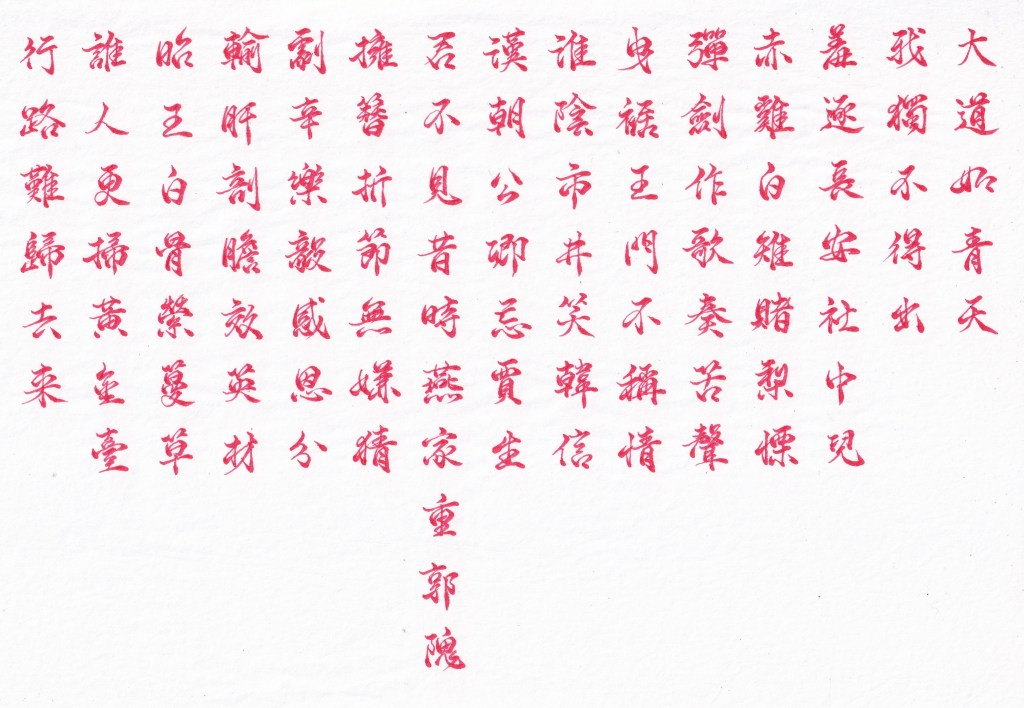 大道如青天
我獨不得出
羞逐長安社中兒
赤雞白雉賭梨慄
彈劍作歌奏苦聲
曳裾王門不稱情
淮陰市井笑韓信
漢朝公卿忌賈生
君不見昔時燕家重郭隗
擁篲折節無嫌猜
劇辛樂毅感恩分
輸肝剖膽效英材
昭王白骨縈蔓草
誰人更掃黃金臺
行路難歸去來